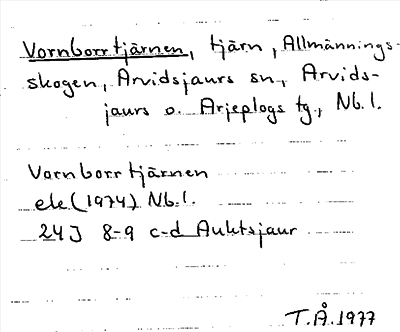 Vornborrtjärnen, tjärn, Allmännings-
skogen, Arvidsjaurs sn., Arvids-
jaurs o. Arjeplogs tg., Nb.l.
Vornborrtjärnen
ek (1974) Nb.l.
24J 8-9 c-d Auktsjaur
T.Å.1977